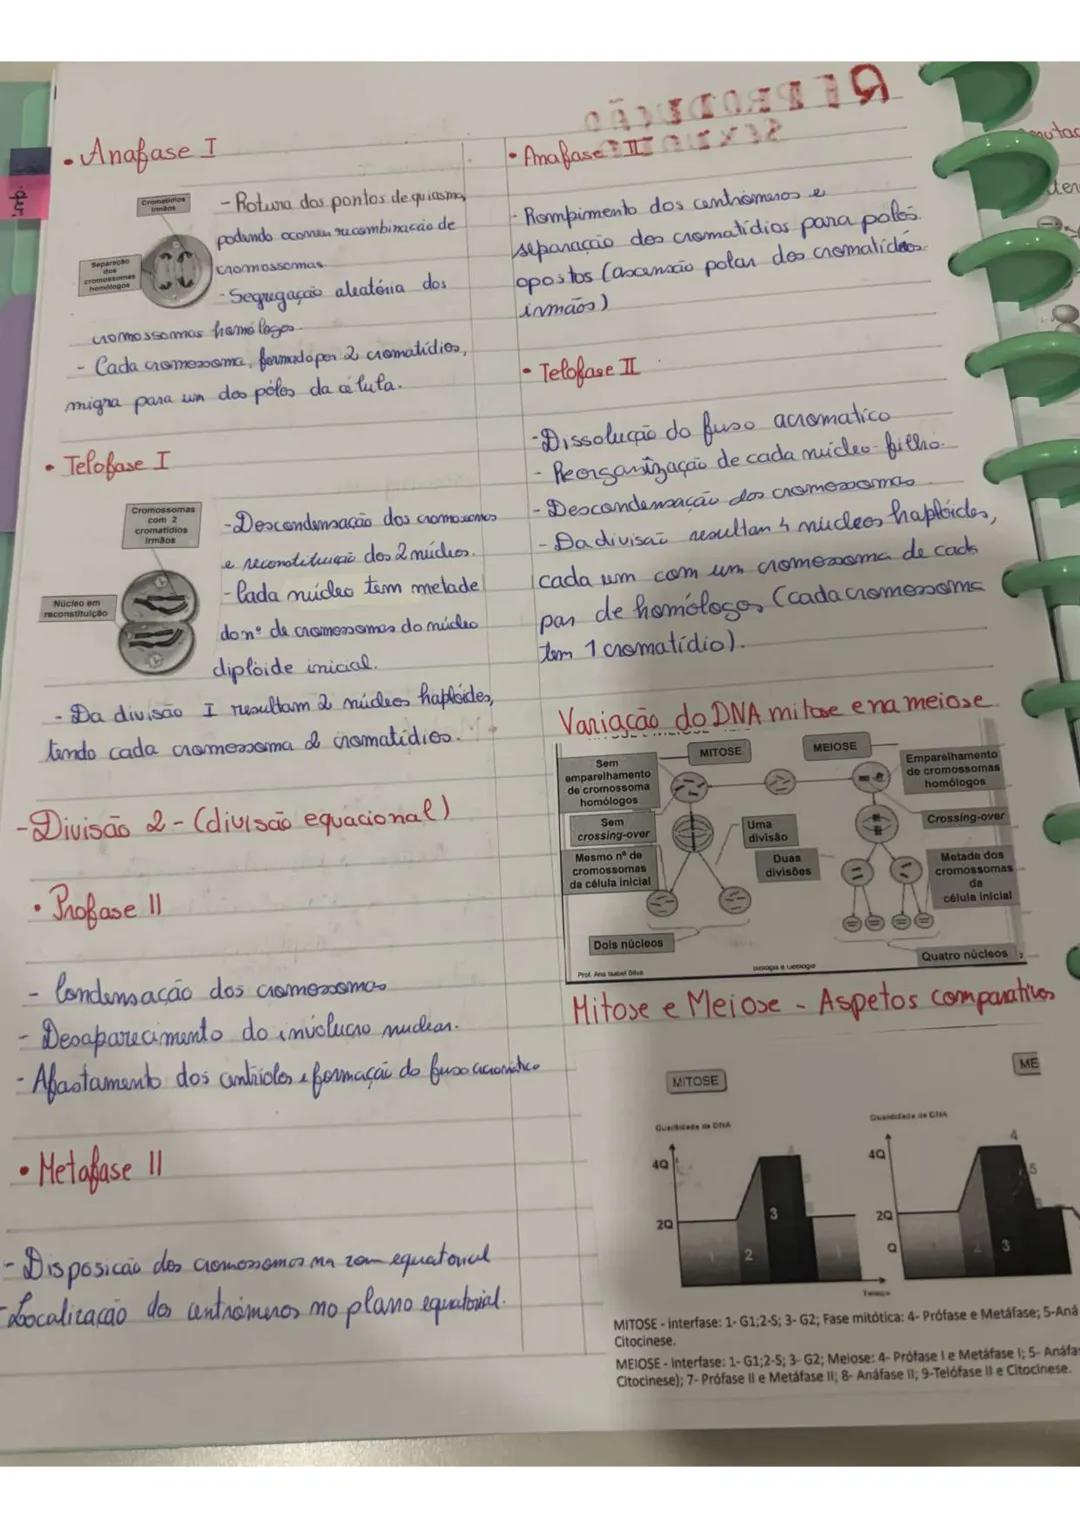 • Anafase I
Cromatídios
irmãos
Separação
dos
cromossomas
homólogos
- Rotura dos pontos de quiasma,
podendo ocorrer recombinação de
cromossomas.
- Segregação aleatória dos
cromossomas homólogos.
- Cada cromossoma, formado por 2 cromatídios,
migra para um dos pólos da célula.
• Telofase I
Cromossomas
com 2
cromatídios
irmãos
Núcleo em
reconstituição
- Descondensação dos cromossomas
e reconstituição dos 2 núcleos.
- Cada núcleo tem metade
do nº de cromossomas do núcleo
diplóide inicial.
- Da divisão I resultam 2 núcleos haplóides,
tendo cada cromossoma 2 cromatídios.
- Divisão 2 - (divisão equacional)
• Profase II
- Condensação dos cromossomas
- Desaparecimento do invólucro nuclear.
- Afastamento dos centríolos e formação do fuso acromático
• Metafase II
- Disposição dos cromossomas na zona equatorial
- Localização dos centrómeros no plano equatorial.
REPRODUÇÃO
• Anafase II
- Rompimento dos centrómeros e
separação dos cromatídios para polos
opostos (ascensão polar dos cromatídios
irmãos)
• Telofase II
- Dissolução do fuso acromatico
- Reorganização de cada núcleo-filho.
- Descondensação dos cromossomas.
- Da divisão resultam 4 núcleos haplóides,
cada um com um cromossoma de cada
par de homólogos (cada cromossoma
tem 1 cromatídio).
Variação do DNA mitose e na meiose.
MITOSE
MEIOSE
Sem
emparelhamento
de cromossoma
homólogos
Emparelhamento
de cromossomas
homólogos
Sem
crossing-over
Uma
divisão
Crossing-over
Mesmo nº de
cromossomas
da célula inicial
Duas
divisões
Metade dos
cromossomas
da
célula inicial
Dois núcleos
Quatro núcleos
Prof. Ana Isabel Silva
Biologia e Geologia
2
Mitose e Meiose - Aspetos comparativos
MITOSE
ME
Quantidade de DNA
Quantidade de DNA
4Q
2Q
1
2
3
Tempo
4Q
2Q
Q
2
3
4
5
MITOSE - Interfase: 1- G1;2-S; 3- G2; Fase mitótica: 4- Prófase e Metáfase; 5-Aná
Citocinese.
MEIOSE - Interfase: 1- G1;2-S; 3- G2; Meiose: 4- Prófase I e Metáfase I; 5- Anáfa
Citocinese); 7- Prófase II e Metáfase II; 8- Anáfase II; 9-Telófase II e Citocinese.